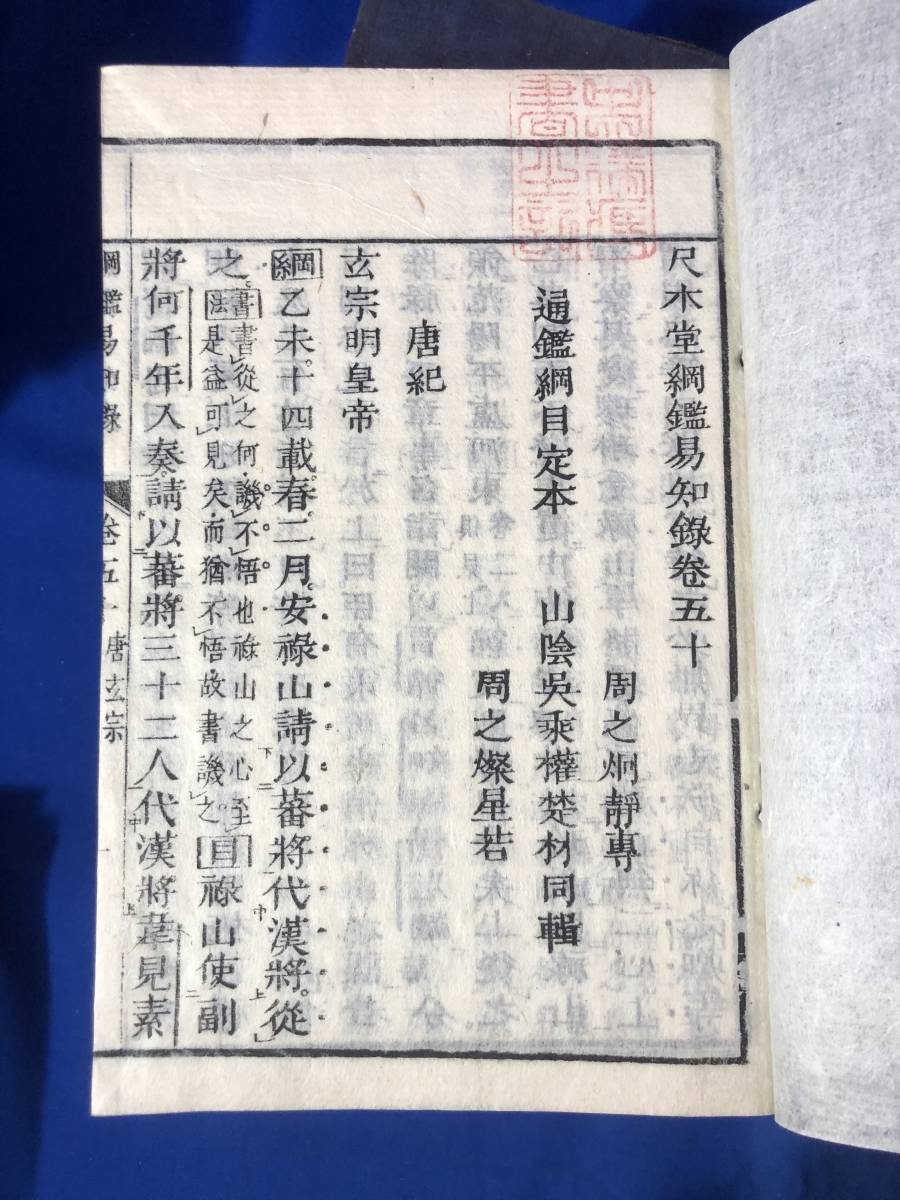 尺木堂綱鑑易知錄卷五十
周之炯靜專
通鑑綱目定本 山陰吳乘權楚材同輯
周之燦星若
唐紀
玄宗明皇帝
綱乙未十四載春二月安祿山請以蕃將代漢將從
之書法書從之何譏不悟也祿山之心至是益可見矣而猶不悟故書譏之目祿山使副
將何千年入奏請以蕃將三十二人代漢將韋見素
綱鑑易知錄 卷五十 唐玄宗